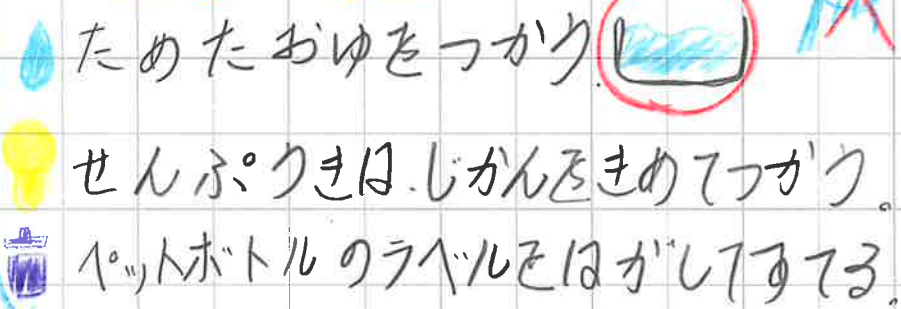 ためたおゆをつかう.
せんぷうきは、じかんをきめてつかう。
ペットボトルのラベルをはがしてすてる。